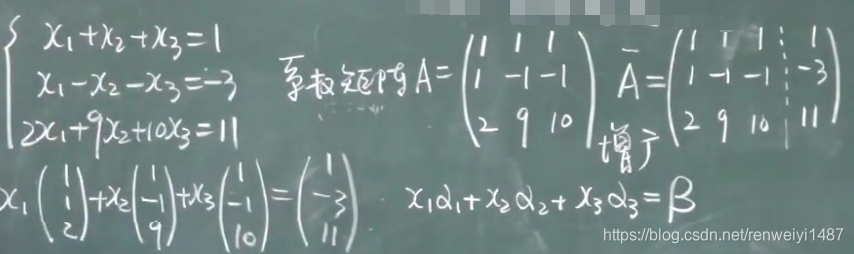 x₁+x₂+x₃=1
x₁-x₂-x₃=-3
2x₁+9x₂+10x₃=11
系数矩阵A=(1 1 1
1 -1 -1
2 9 10)
Ā=(1 1 1 ⋮ 1
1 -1 -1 ⋮ -3
2 9 10 ⋮ 11)
增广
x₁(1 1 2)+x₂(1 -1 9)+x₃(1 -1 10)=(1 -3 11)
x₁α₁+x₂α₂+x₃α₃=β
https://blog.csdn.net/renweiyi1487